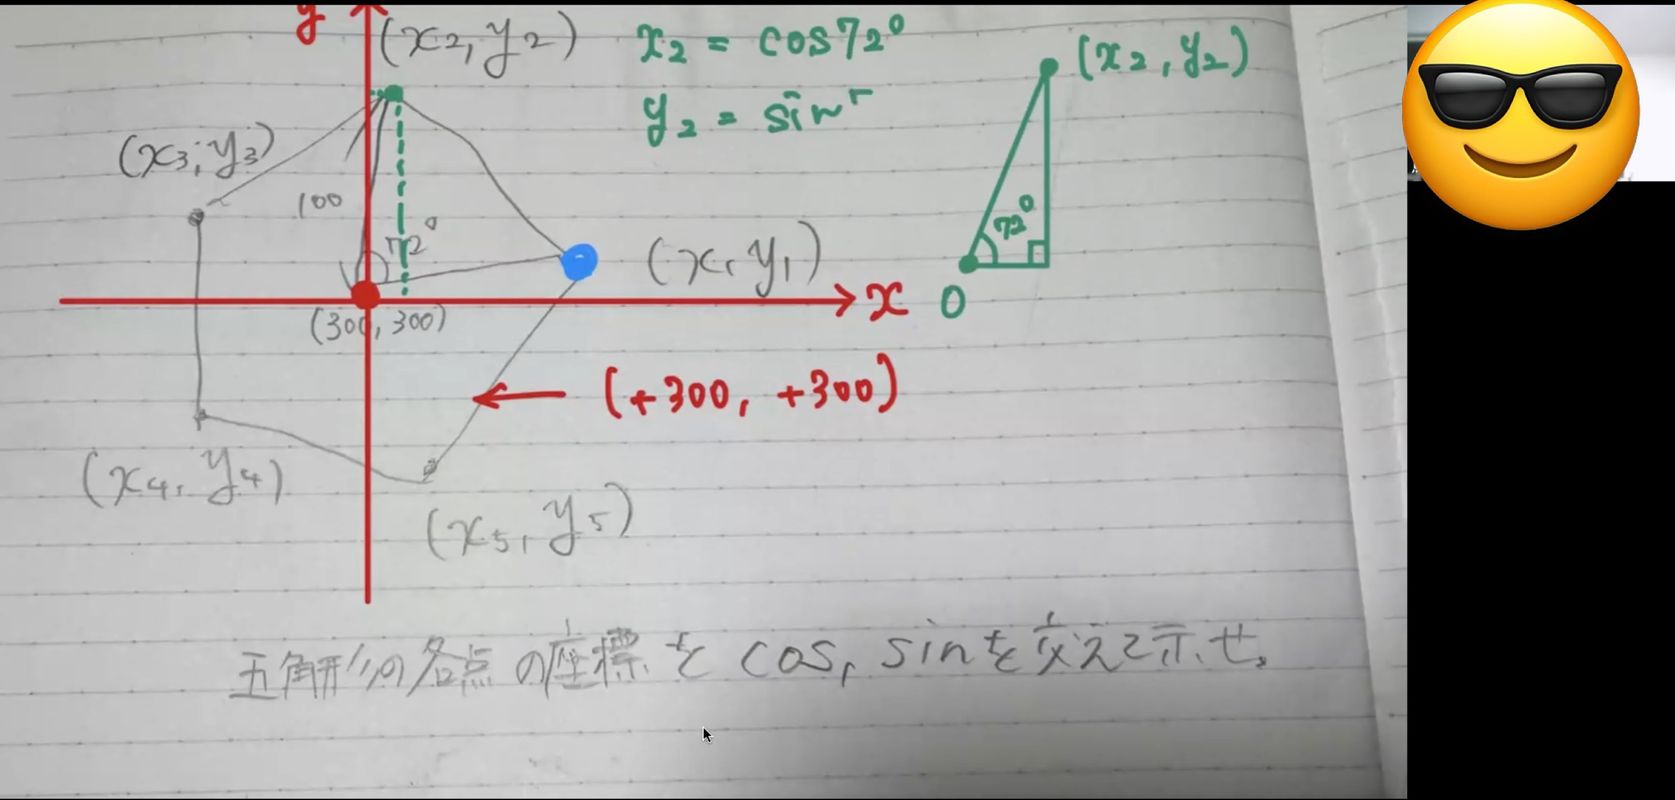 y
(x2, y2)
x2 = cos72°
y2 = sin
(x2, y2)
(x3, y3)
100
72°
72°
(x1, y1)
x
0
(300, 300)
(+300, +300)
(x4, y4)
(x5, y5)
五角形の各点の座標を cos, sinを交えて示せ。